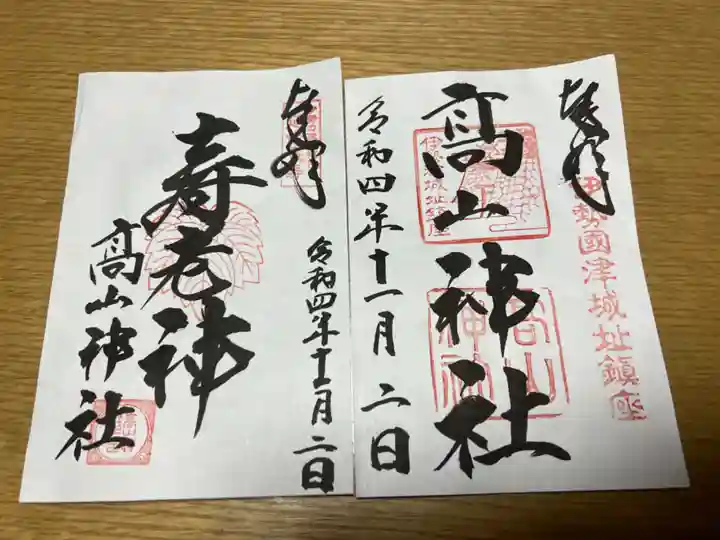 奉拝
伊勢國津城址鎮座
髙山神社
令和四年十一月二日
奉拝
寿老神
髙山神社
令和四年十一月二日